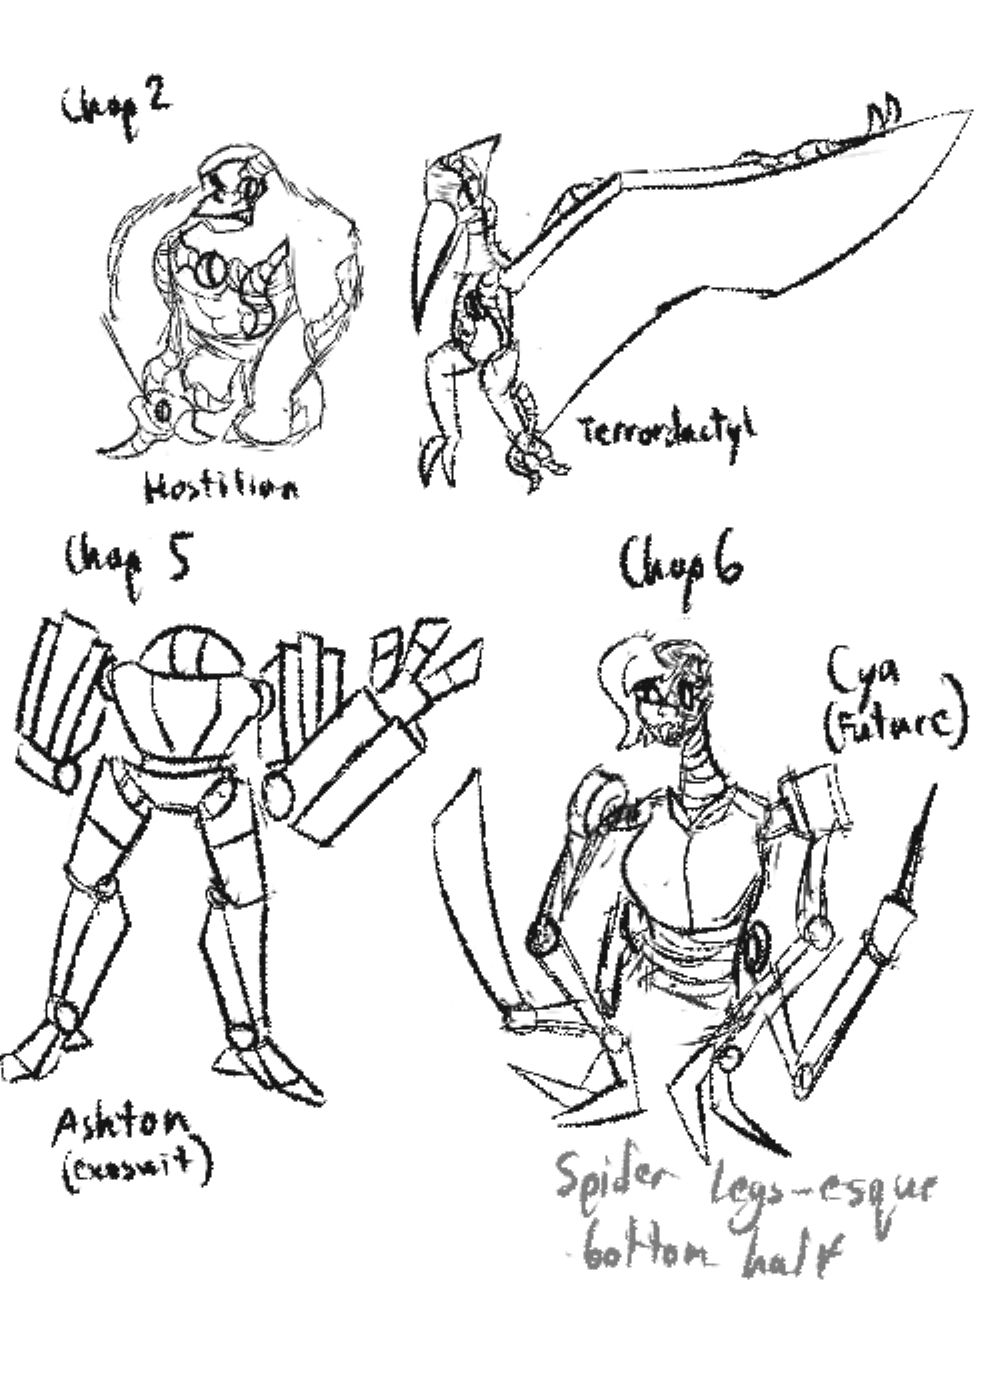 Chap 2
Hostilian
Terrordactyl
Chap 5
Ashton
(exosuit)
Chap 6
Cya
(Future)
Spider legs-esque
bottom half